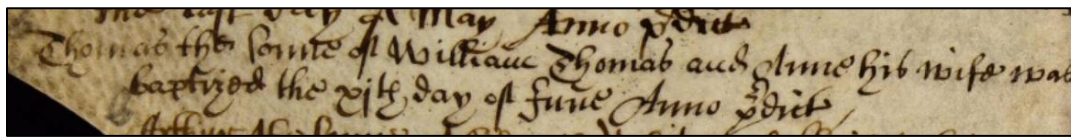 the last day of May Anno p̄dict
Thomas the sonne of William Thomas and Anne his wife was
baptized the xjth day of June Anno p̄dict